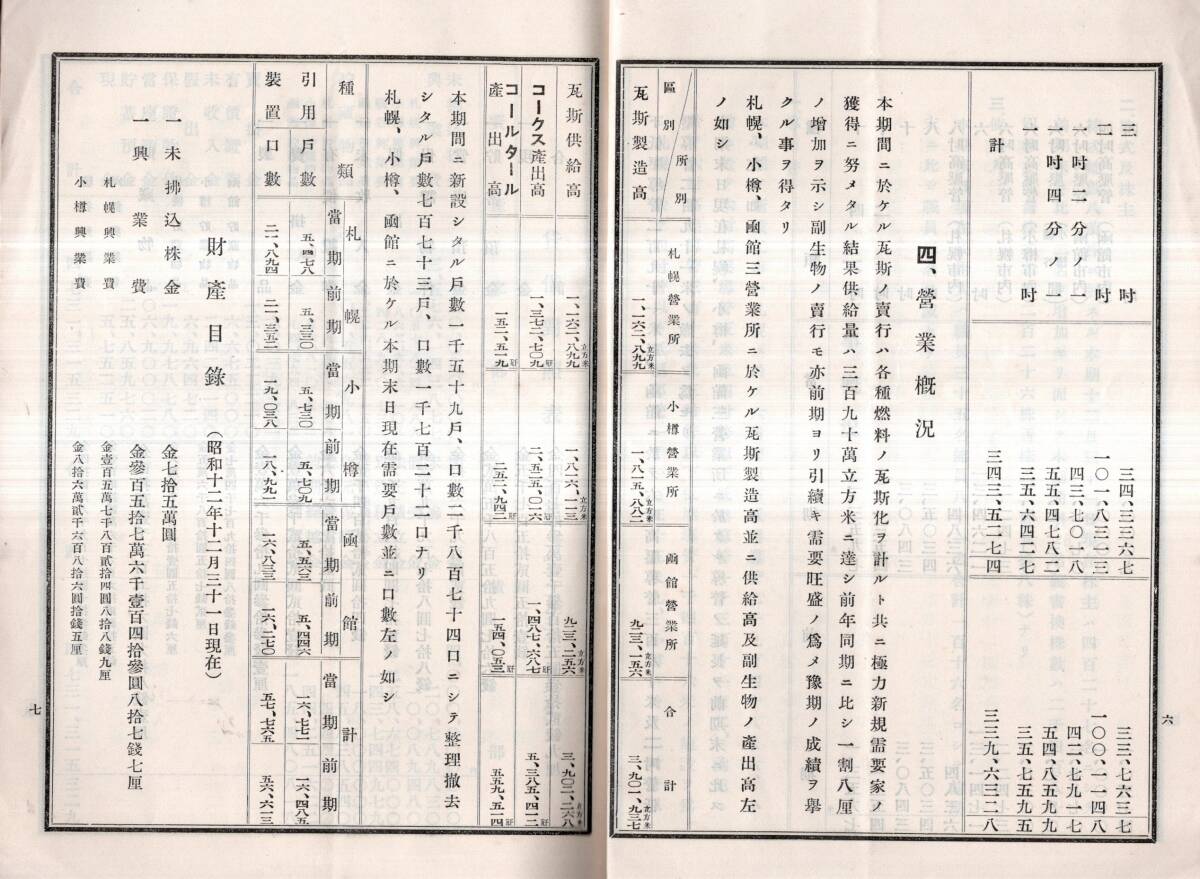 三吋 三四、三三六七 三三、七六三七
二吋 一〇一、八三〇三 一〇〇、一一四八
一吋二分ノ一 四三、七〇一八 四二、七九一七
一吋四分ノ一 五五、四七八二 五四、八五九九
一吋 三五、六四二七 三五、七五九五
計 三四三、五二七四 三三九、六三二八
四、營業概況
本期間ニ於ケル瓦斯ノ賣行ハ各種燃料ノ瓦斯化ヲ計ルト共ニ極力新規需要家ノ
獲得ニ努メタル結果供給量ハ三百九十萬立方米ニ達シ前年同期ニ比シ一割八厘
ノ增加ヲ示シ副生物ノ賣行モ亦前期ヨリ引續キ需要旺盛ノ爲メ豫期ノ成績ヲ擧
クル事ヲ得タリ
札幌、小樽、凾館三營業所ニ於ケル瓦斯製造高並ニ供給高及副生物ノ產出高左
ノ如シ
區別 所別 札幌營業所 小樽營業所 凾館營業所 合計
瓦斯製造高 一、一六二、八九九立方米 一、八一五、八八二立方米 九二三、一五六立方米 三、九〇一、九三七立方米
六
瓦斯供給高 一、一六二、八九九立方米 一、八一六、一一三立方米 九二三、二五六立方米 三、九〇二、二六八立方米
コークス產出高 一、三七二、七〇九瓩 二、五二五、〇一六瓩 一、四八七、六八七瓩 五、三八五、四一二瓩
コールタール產出高 一五二、五一九瓩 二五二、九四二瓩 一五四、〇五三瓩 五五九、五一四瓩
本期間ニ新設シタル戶數一千五十九戶、口數二千八百七十四口ニシテ整理撤去
シタル戶數七百七十三戶、口數一千七百二十二口ナリ
札幌、小樽、凾館ニ於ケル本期末日現在需要戶數並ニ口數左ノ如シ
種類 札幌 小樽 凾館 計
當期 前期 當期 前期 當期 前期 當期 前期
引用戶數 五、四七八 五、三三〇 五、七三〇 五、七〇九 五、五六三 五、四四六 一六、七七一 一六、四八五
裝置口數 二一、八九四 二一、三五二 一九、〇三八 一八、九九一 一六、八三三 一六、二七〇 五七、七六五 五六、六一三
財產目錄(昭和十二年十二月三十一日現在)
一未拂込株金 金七拾五萬圓
一興業費 金參百五拾七萬六千壹百四拾參圓八拾七錢七厘
札幌興業費 金壹百五萬七千八百貳拾四圓八拾八錢九厘
小樽興業費 金八拾六萬貳千六百八拾六圓拾錢五厘
七